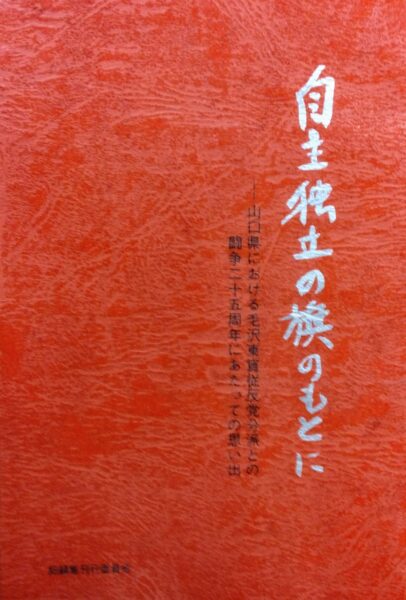 自主独立の旗のもとに
──山口県における毛沢東盲従反党分派との
闘争二十五周年にあたっての思い出
記録集刊行委員会